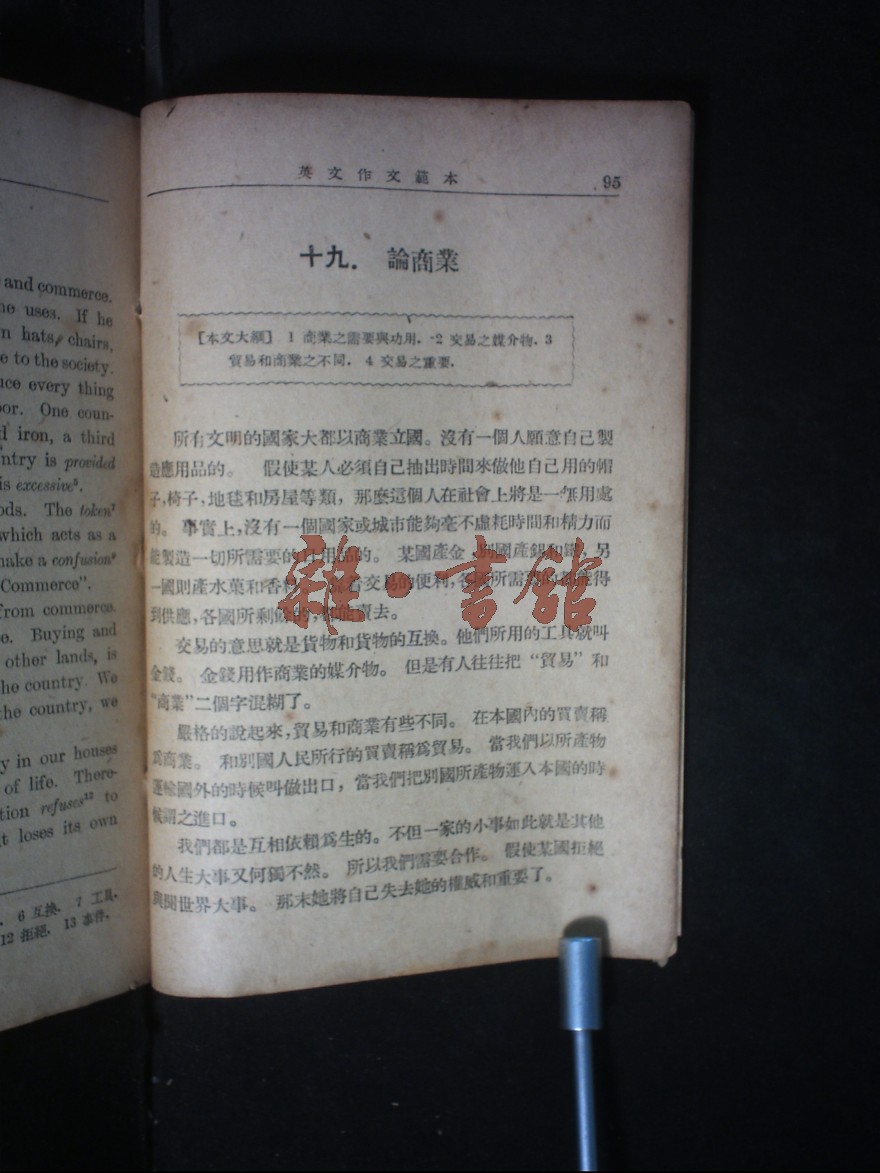 and commerce.
uses. If he
hats, chairs,
to the society.
every thing
One coun-
iron, a third
is provided
is excessive⁵.
The token⁷
which acts as a
make a confusion⁹
Commerce".
from commerce.
Buying and
other lands, is
the country. We
the country, we
in our houses
of life. There-
refuses¹² to
loses its own
6 互換. 7 工具.
12 拒絕. 13 事件.
英文作文範本 95
十九. 論商業
【本文大綱】 1 商業之需要與功用. 2 交易之媒介物. 3
貿易和商業之不同. 4 交易之重要.
所有文明的國家大都以商業立國。沒有一個人願意自己製
造應用品的。 假使某人必須自己抽出時間來做他自己用的帽
子,椅子,地毯和房屋等類, 那麼這個人在社會上將是一無用處
的。 事實上,沒有一個國家或城市能夠毫不虛耗時間和精力而
能製造一切所需要的日用品的。 某國產金,別國產銀和鐵,另
一國則產水菓和香料。 交易的便利,各國所需要的都能得
到供應,各國所剩餘的,都能賣去。
交易的意思就是貨物和貨物的互換。他們所用的工具就叫
金錢。 金錢用作商業的媒介物。 但是有人往往把 “貿易” 和
“商業”二個字混糊了。
嚴格的說起來,貿易和商業有些不同。 在本國內的買賣稱
爲商業。 和別國人民所行的買賣稱爲貿易。 當我們以所產物
運輸國外的時候叫做出口, 當我們把別國所產物運入本國的時
候謂之進口。
我們都是互相依賴爲生的。不但一家的小事如此就是其他
的人生大事又何獨不然。 所以我們需要合作。 假使某國拒絕
與聞世界大事。 那末她將自己失去她的權威和重要了。
雜·書館